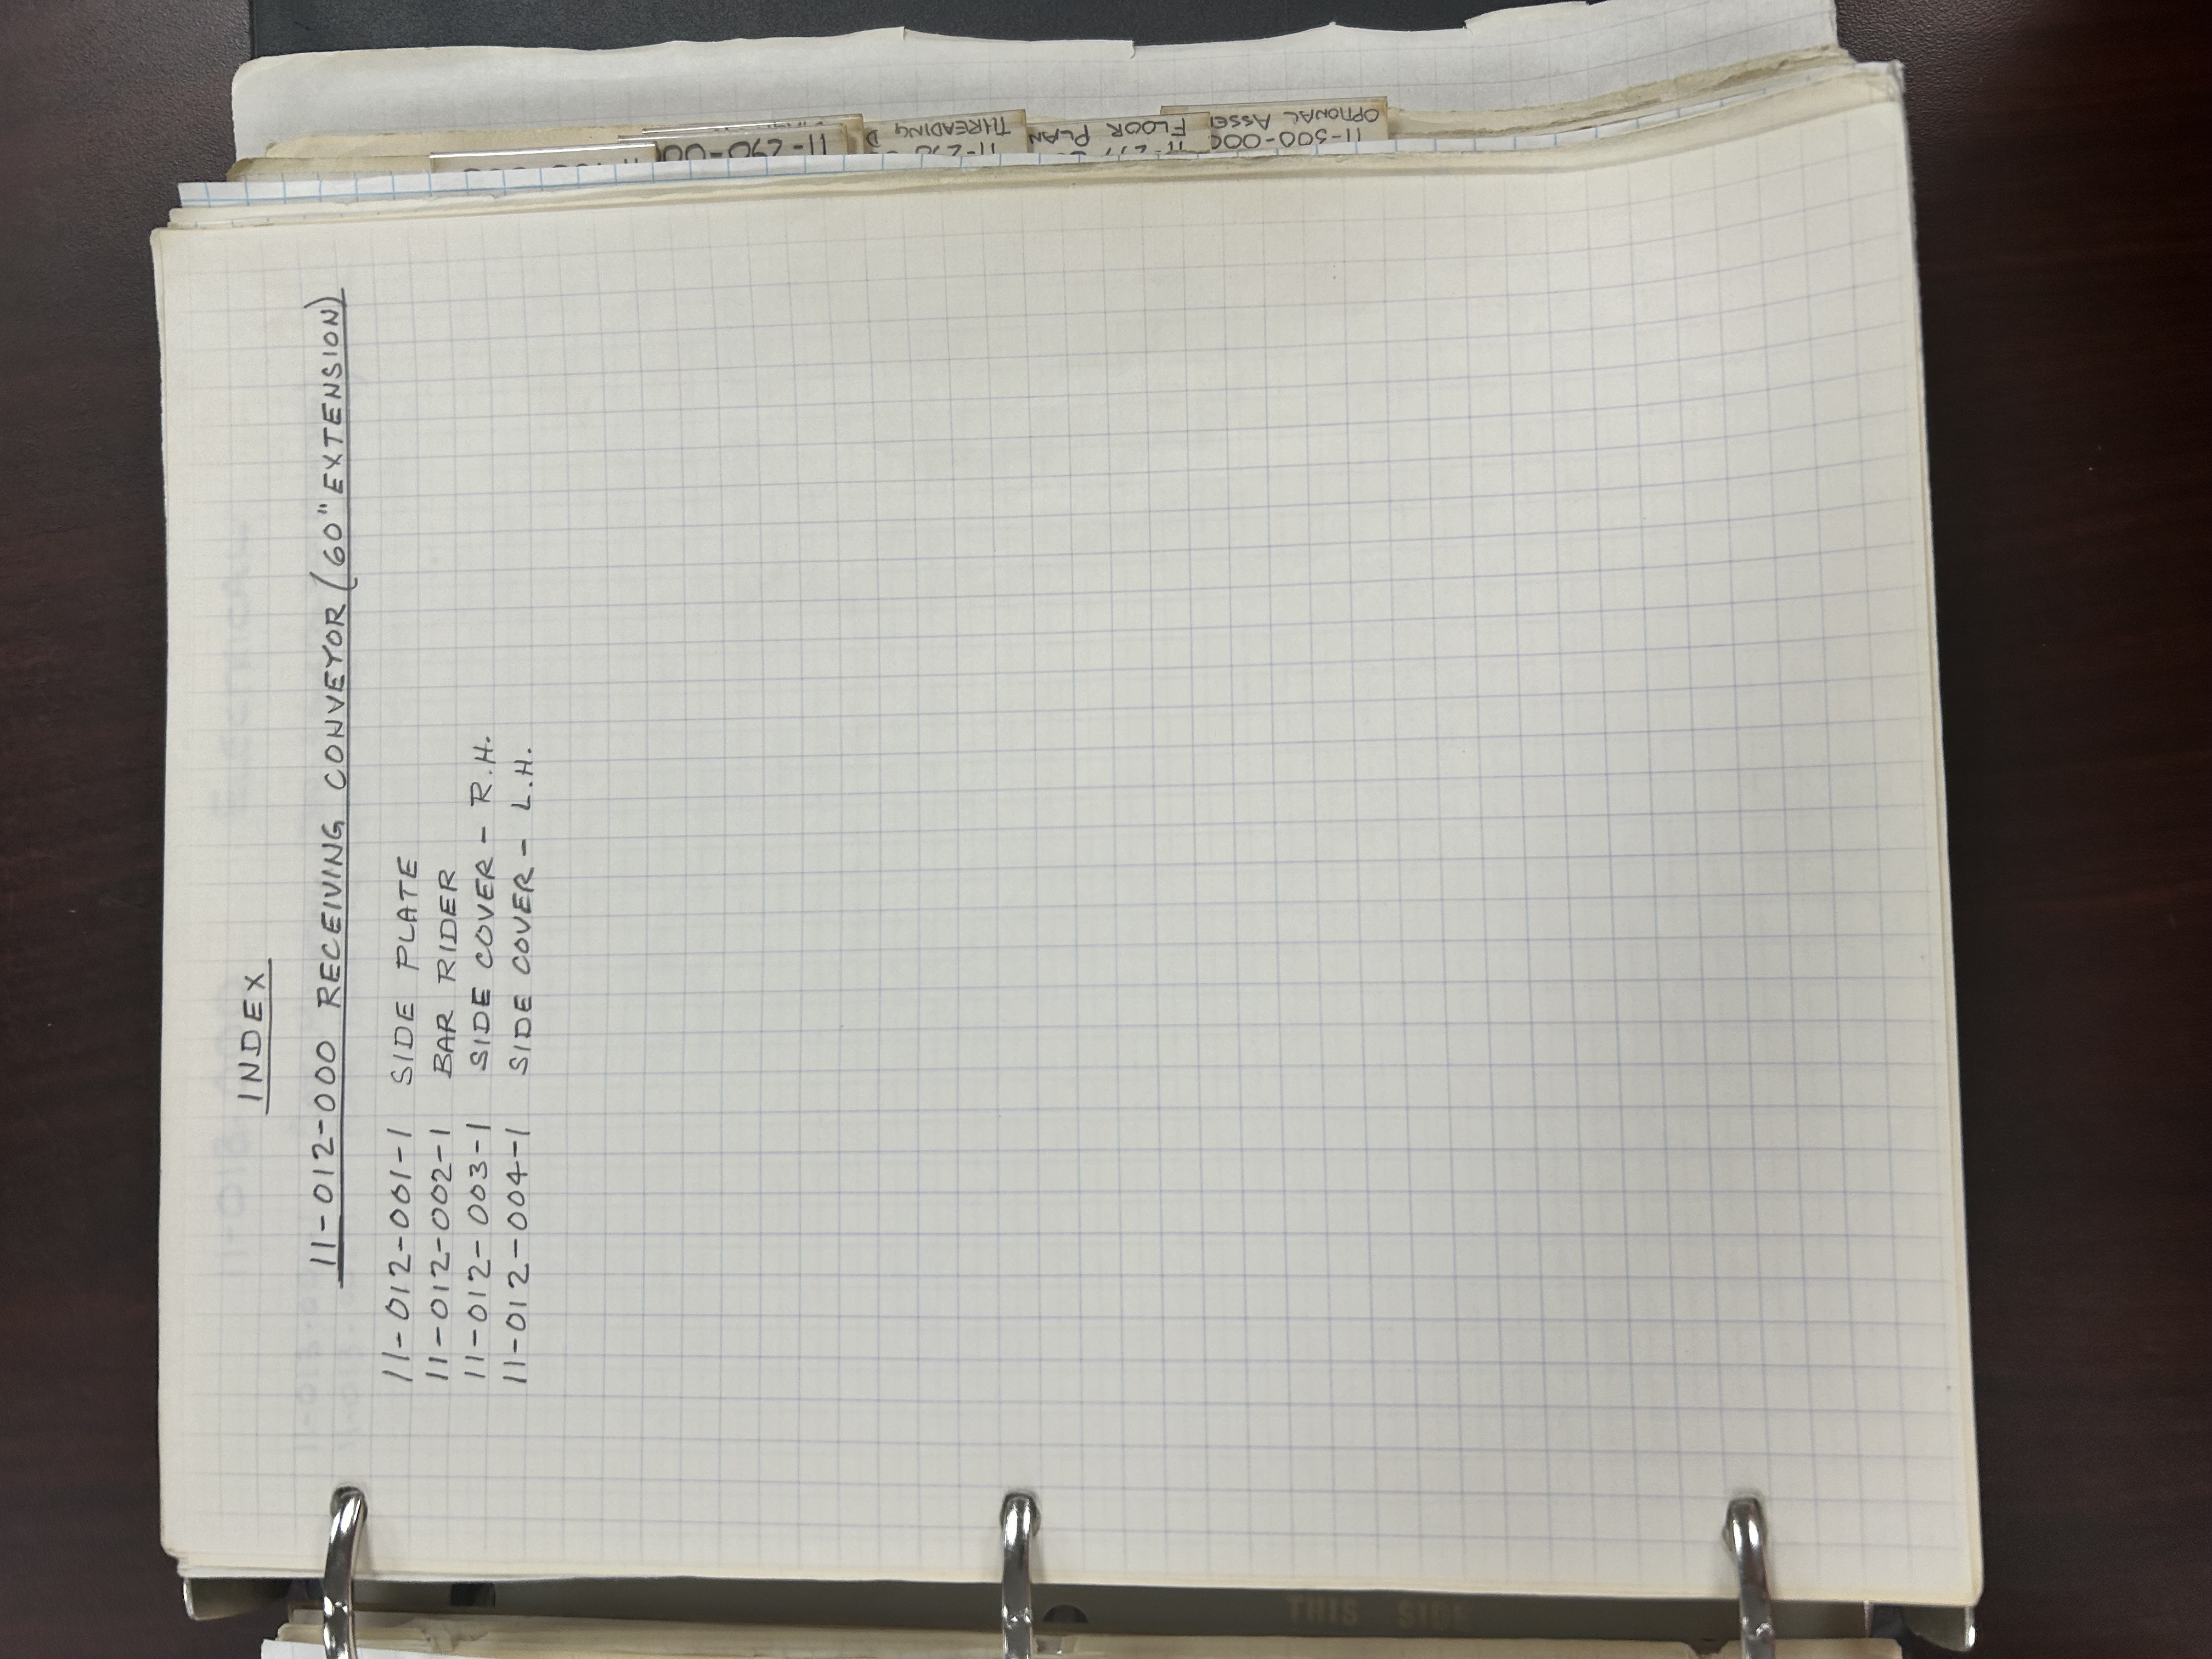 INDEX
11-012-000 RECEIVING CONVEYOR (60" EXTENSION)
11-012-001-1 SIDE PLATE
11-012-002-1 BAR RIDER
11-012-003-1 SIDE COVER - R.H.
11-012-004-1 SIDE COVER - L.H.
THREADING
FLOOR PLAN
11-300-000
OPTIONAL
THIS SIDE